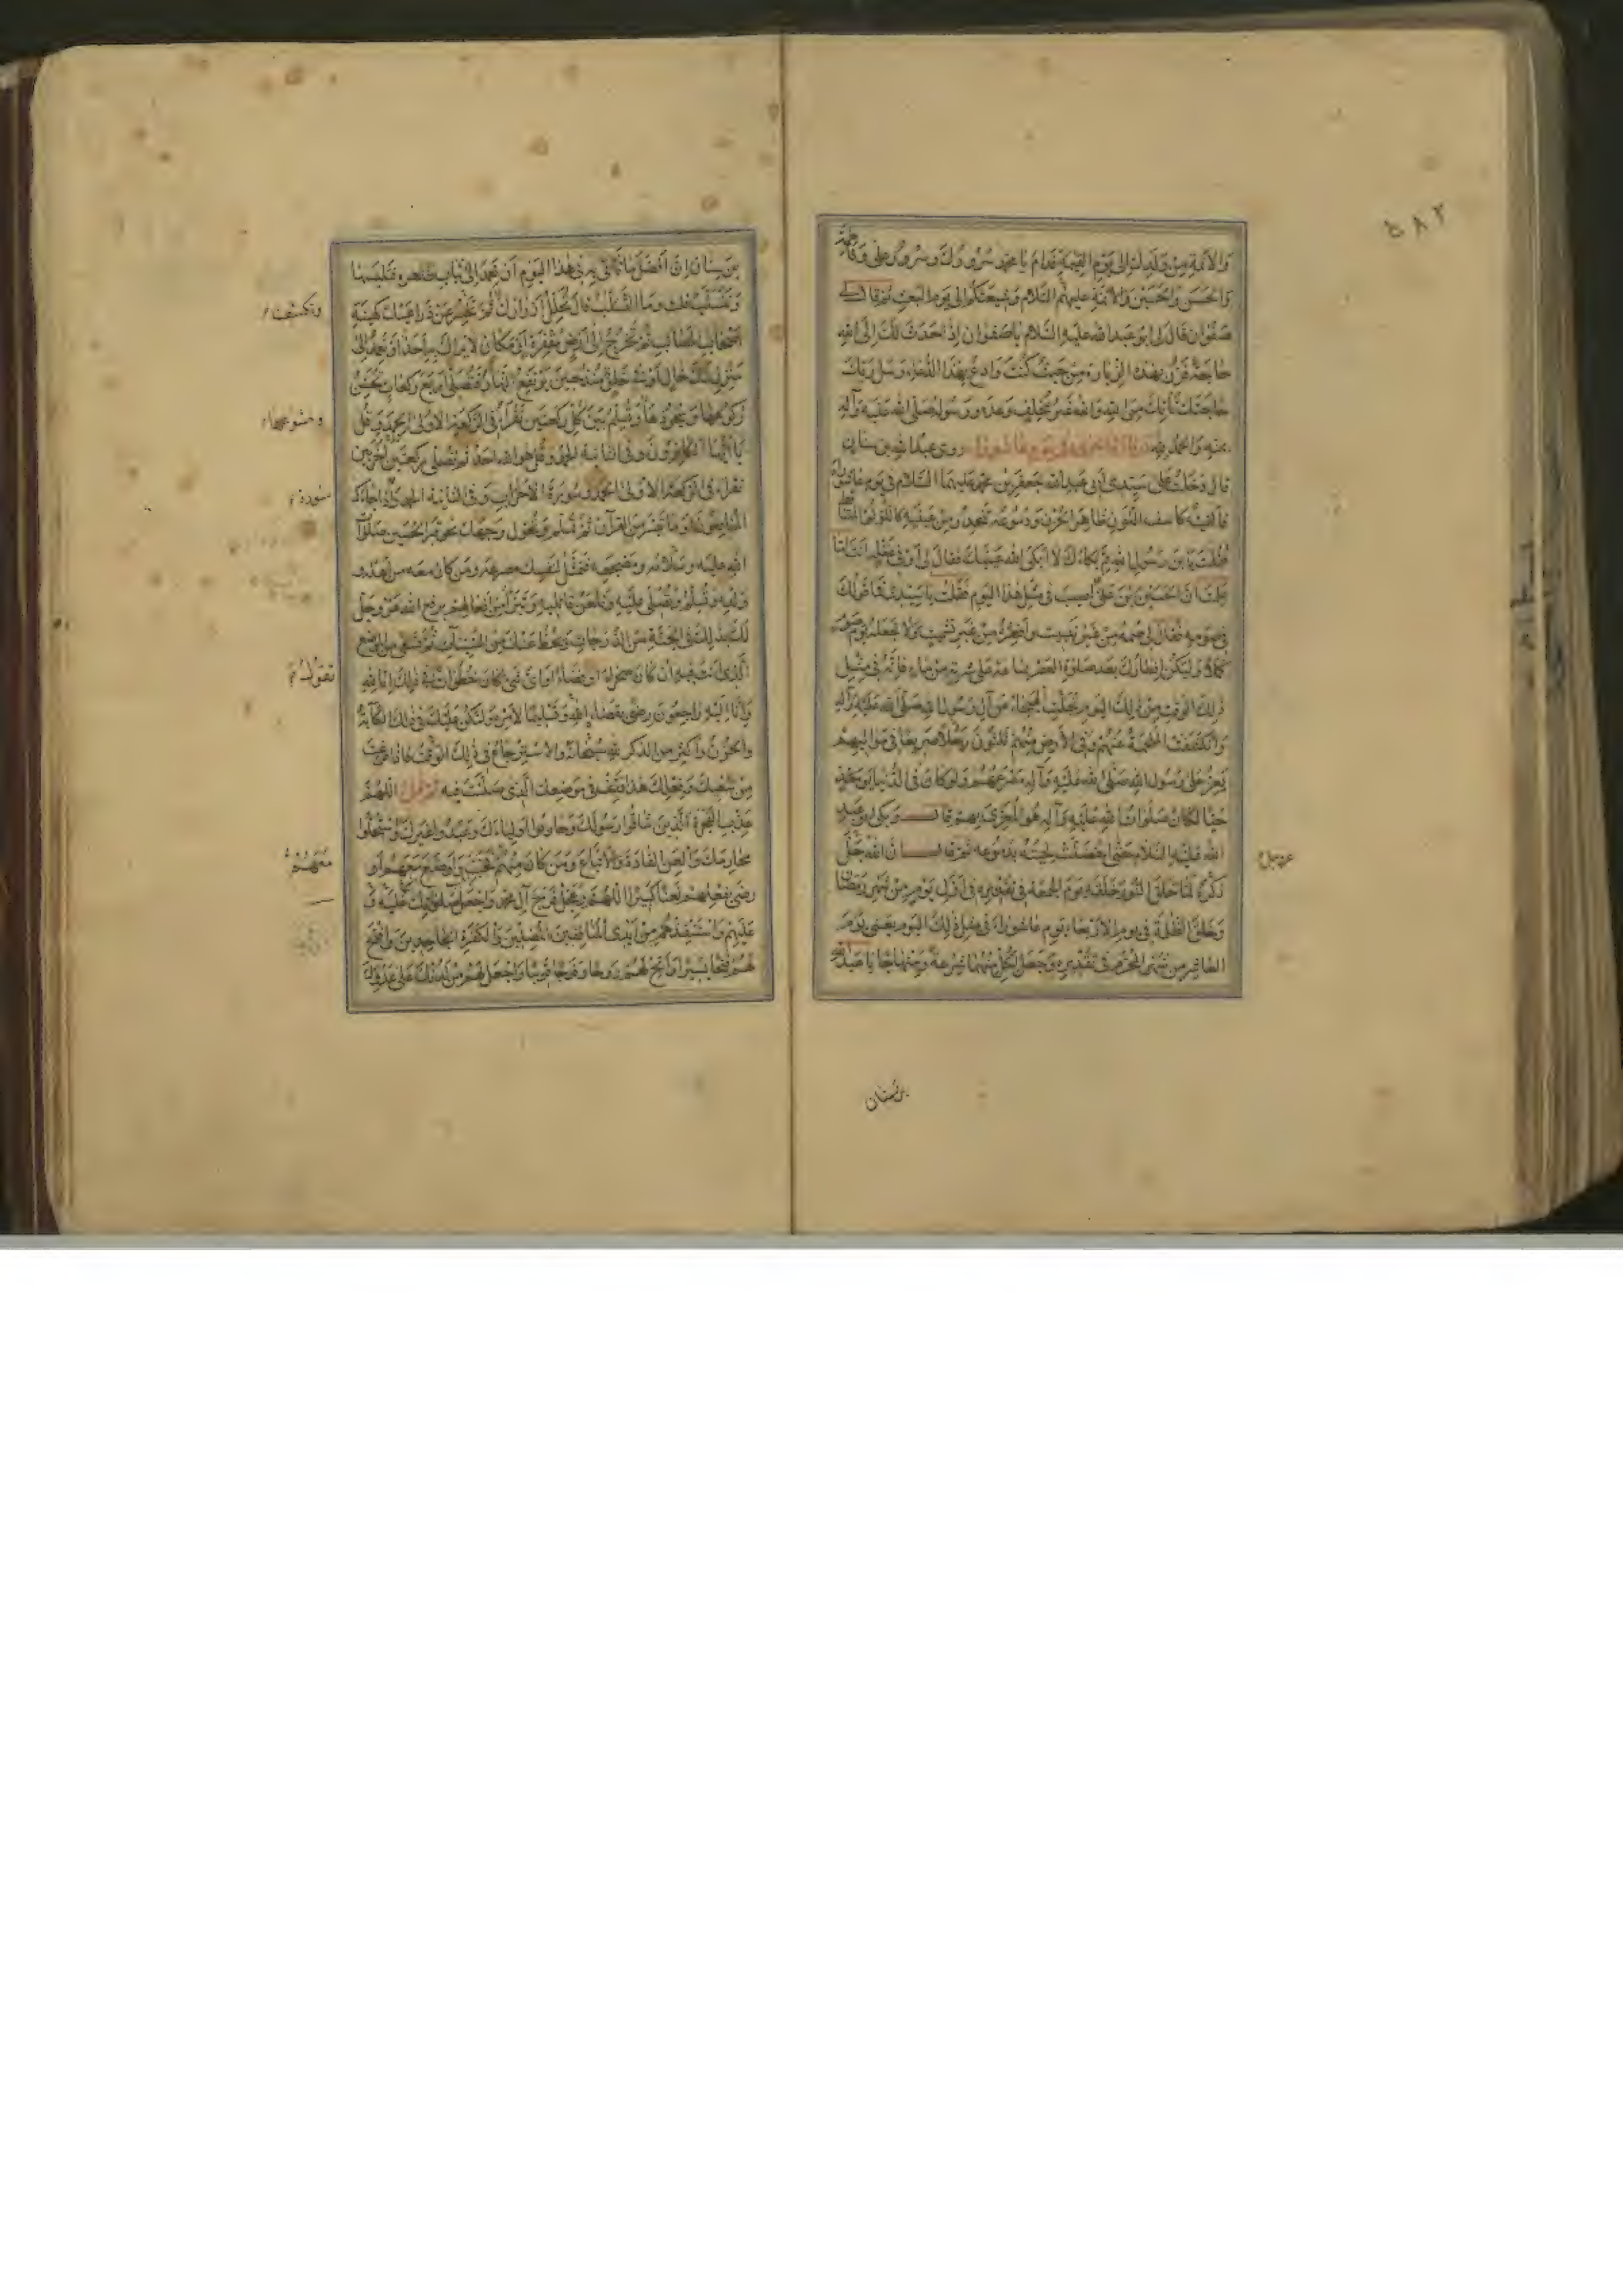 ٥٨٢
والائمة من ولدك الى يوم القيمة فدام يا محمد سرورك وسرور علي وفاطمة
والحسن والحسين والائمة عليهم السلام وشيعتكم الى يوم البعث ثم قال لي
صفوان قال لي ابو عبد الله عليه السلام يا صفوان اذا حدث لك الى الله
حاجة فزر بهذه الزيارة من حيث كنت وادع بهذا الدعاء وسل ربك
حاجتك تأتك من الله والله غير مخلف وعده ورسوله صلى الله عليه وآله
بمنه والحمد لله روى عبد الله بن سنان
قال دخلت على سيدي ابي عبد الله جعفر بن محمد عليهما السلام في يوم عاشوراء
فألفيته كاسف اللون ظاهر الحزن ودموعه تنحدر من عينيه كاللؤلؤ المتساقط
فقلت يا بن رسول الله مم بكاؤك لا ابكى الله عينيك فقال لي أوفي غفلة انت اما
علمت ان الحسين بن علي اصيب في مثل هذا اليوم فقلت يا سيدي فما قولك
في صومه فقال لي صمه من غير تبييت وافطره من غير تشميت ولا تجعله يوم صوم
كملا وليكن افطارك بعد صلوة العصر بساعة على شربة من ماء فانه في مثل
ذلك الوقت من ذلك اليوم تجلت الهيجاء عن آل رسول الله صلى الله عليه وآله
وانكشفت الملحمة عنهم وفي الارض منهم ثلثون رجلا صريعا في مواليهم
يعز على رسول الله صلى الله عليه وآله مصرعهم ولو كان في الدنيا يومئذ
حيا لكان صلوات الله عليه وآله هو المعزى بهم قال وبكى ابو عبد
الله عليه السلام حتى اخضلت لحيته بدموعه ثم قال ان الله جل
عز وجل
ذكره لما خلق النور خلقه يوم الجمعة في تقديره في اول يوم من شهر رمضان
وخلق الظلمة في يوم الاربعاء يوم عاشوراء في مثل ذلك اليوم يعني يوم
العاشر من شهر المحرم في تقديره وجعل لكل منهما شرعة ومنهاجا يا عبد الله
بن سنان
بن سنان ان افضل ما تأتي به في هذا اليوم ان تعمد الى ثياب طاهرة فتلبسها
وتتسلب قلت وما التسلب قال تحلل ازرارك ثم تحسر عن ذراعيك كهيئة
وتكشف
اصحاب المصائب ثم تخرج الى ارض مقفرة او مكان لا يراك به احد او تعمد الى
منزل لك خال او في خلوة منذ حين يرتفع النهار فتصلي اربع ركعات تحسن
ركوعها وسجودها وتسلم بين كل ركعتين تقرأ في الركعة الاولى الحمد وقل
وخشوعها
يا ايها الكافرون وفي الثانية الحمد وقل هو الله احد ثم تصلي ركعتين اخريين
تقرأ في الركعة الاولى الحمد وسورة الاحزاب وفي الثانية الحمد واذا جاءك
سورة
المنافقون او ما تيسر من القرآن ثم تسلم وتحول وجهك نحو قبر الحسين صلوات
الله عليه وسلامه ومضجعه فتمثل لنفسك مصرعه ومن كان معه من اهله
وولده وتسلم وتصلي عليه وتلعن قاتليه وتتبرأ من افعالهم يرفع الله عز وجل
لك بذلك في الجنة من الدرجات ويحط عنك من السيئات ثم تسعى من الموضع
الذي انت فيه ان كان صحراء او فضاء او اي شيء كان خطوات في ذلك انا لله
تقول
وانا اليه راجعون رضى بقضاء الله وتسليما لامره وليكن عليك في ذلك الكآبة
والحزن واكثر من الذكر لله سبحانه والاسترجاع في ذلك الوقت فاذا فرغت
من سعيك وفعلك هذا فقف في موضعك الذي صليت فيه ثم قل اللهم
عذب الفجرة الذين شاقوا رسولك وحاربوا اولياءك وعبدوا غيرك واستحلوا
محارمك والعن القادة والاتباع ومن كان منهم فخب او اوضع معهم او
معهم
رضي بفعلهم لعنا كثيرا اللهم وعجل فرج آل محمد واجعل صلواتك عليه و
عليهم واستنقذهم من ايدي المنافقين المضلين والكفرة الجاحدين وافتح
لهم فتحا يسيرا واتح لهم روحا وفرجا قريبا واجعل لهم من لدنك على عدوك